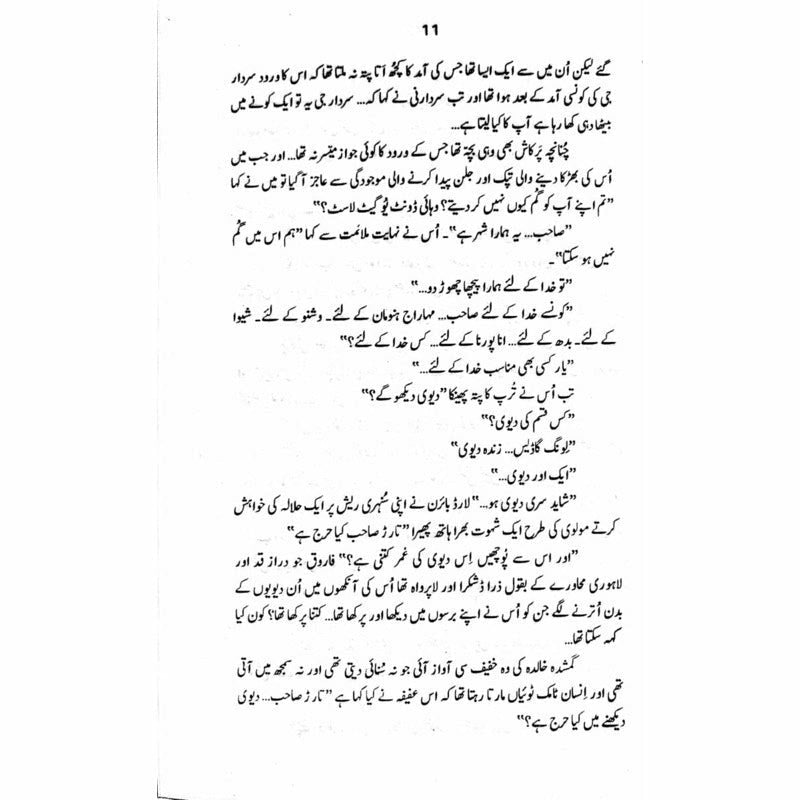 11
گئے لیکن اُن میں سے ایک ایسا تھا جس کی آمد کا کچُھ اَتا پتہ نہ ملتا تھا کہ اس کا ورود سردار
جی کی کونسی آمد کے بعد ہوا تھا اور تب سردارنی نے کہا کہ... سردار جی یہ تو ایک کونے میں
بیٹھا دہی کھا رہا ہے آپ کا کیا لیتا ہے...
چُنانچہ پَرکاش بھی وہی بچّہ تھا جس کے ورود کا کوئی جواز میسر نہ تھا... اور جب میں
اُس کی بھڑکا دینے والی تپک اور جلن پیدا کرنے والی موجودگی سے عاجز آ گیا تو میں نے کہا
”تم اپنے آپ کو گُم کیوں نہیں کر دیتے؟ وہائی ڈونٹ یُو گیٹ لاسٹ؟“
”صاحب... یہ ہمارا شہر ہے“۔ اُس نے نہایت ملائمت سے کہا ”ہم اس میں گُم
نہیں ہو سکتا“۔
”تو خدا کے لئے ہمارا پیچھا چھوڑ دو...“
”کونسے خدا کے لئے صاحب... مہاراج ہنومان کے لئے۔ وشنو کے لئے۔ شیوا
کے لئے۔ بدھ کے لئے... انا پورنا کے لئے... کس خدا کے لئے؟“
”یار کسی بھی مناسب خدا کے لئے...“
تب اُس نے تُرپ کا پتہ پھینکا ”دیوی دیکھو گے؟“
”کس قسم کی دیوی؟“
”لِونگ گاڈیس... زندہ دیوی“
”ایک اور دیوی...“
”شاید سری دیوی ہو...“ لارڈ بائرن نے اپنی سُنہری ریش پر ایک حلالہ کی خواہش
کرتے مولوی کی طرح ایک شہوت بھرا ہاتھ پھیرا ”تارڑ صاحب کیا حرج ہے“
”اور اس سے پُوچھیں اِس دیوی کی عُمر کتنی ہے؟“ فاروق جو دراز قد اور
لاہوری محاورے کے بقول ذرا ڈشکرا اور لاپرواہ تھا اُس کی آنکھوں میں اُن دیویوں کے
بدن اُترنے لگے جن کو اُس نے اپنے برسوں میں دیکھا اور پرکھا تھا... کتنا پرکھا تھا؟ کون کیا
کہہ سکتا تھا...
گمشدہ خالدہ کی وہ خفیف سی آواز آئی جو نہ سُنائی دیتی تھی اور نہ سمجھ میں آتی
تھی اور اِنسان ٹامک ٹوئیاں مارتا رہتا تھا کہ اس عفیفہ نے کیا کہا ہے ”تارڑ صاحب... دیوی
دیکھنے میں کیا حرج ہے؟“